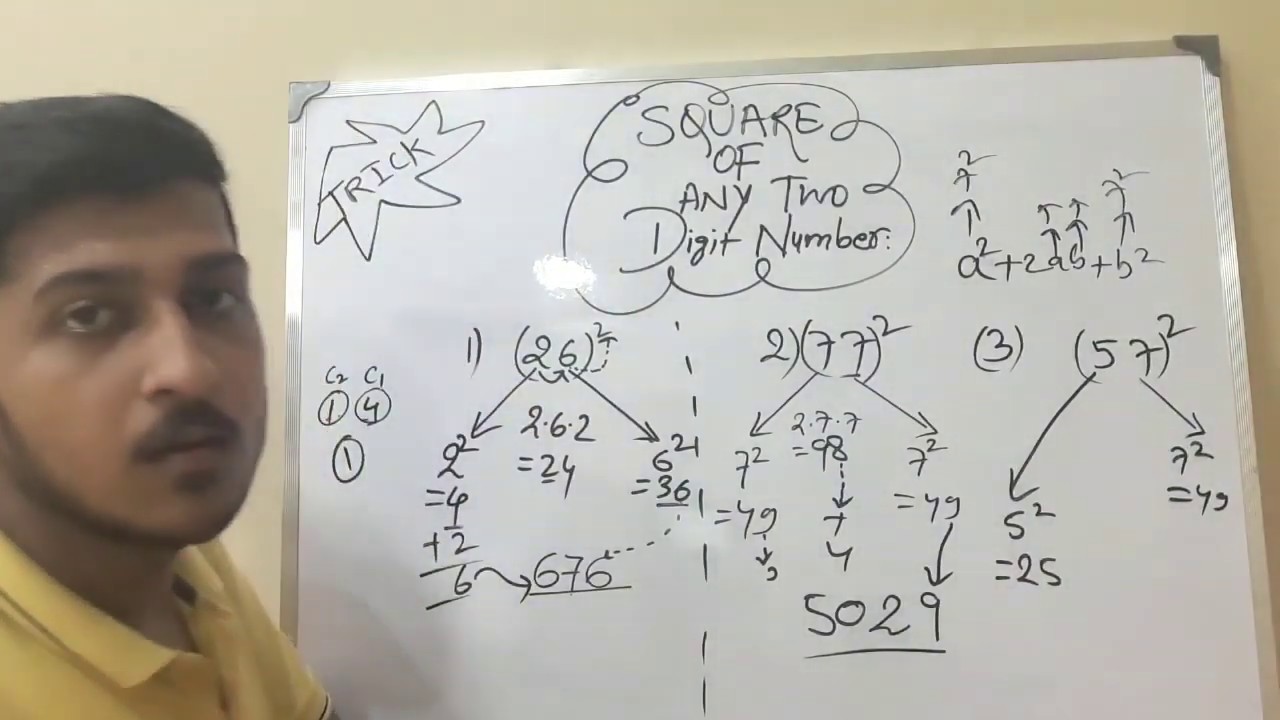 TRICK
SQUARE
OF
ANY TWO
Digit Number:
7²
7²
a²+2ab+b²
C₂ C₁
1 4
1
1) (26)²
2²
=4
+2
6
2·6·2
=24
6²
=36
676
2) (77)²
7²
=49
2·7·7
=98
+
4
7²
=49
5029
(3) (57)²
5²
=25
7²
=49